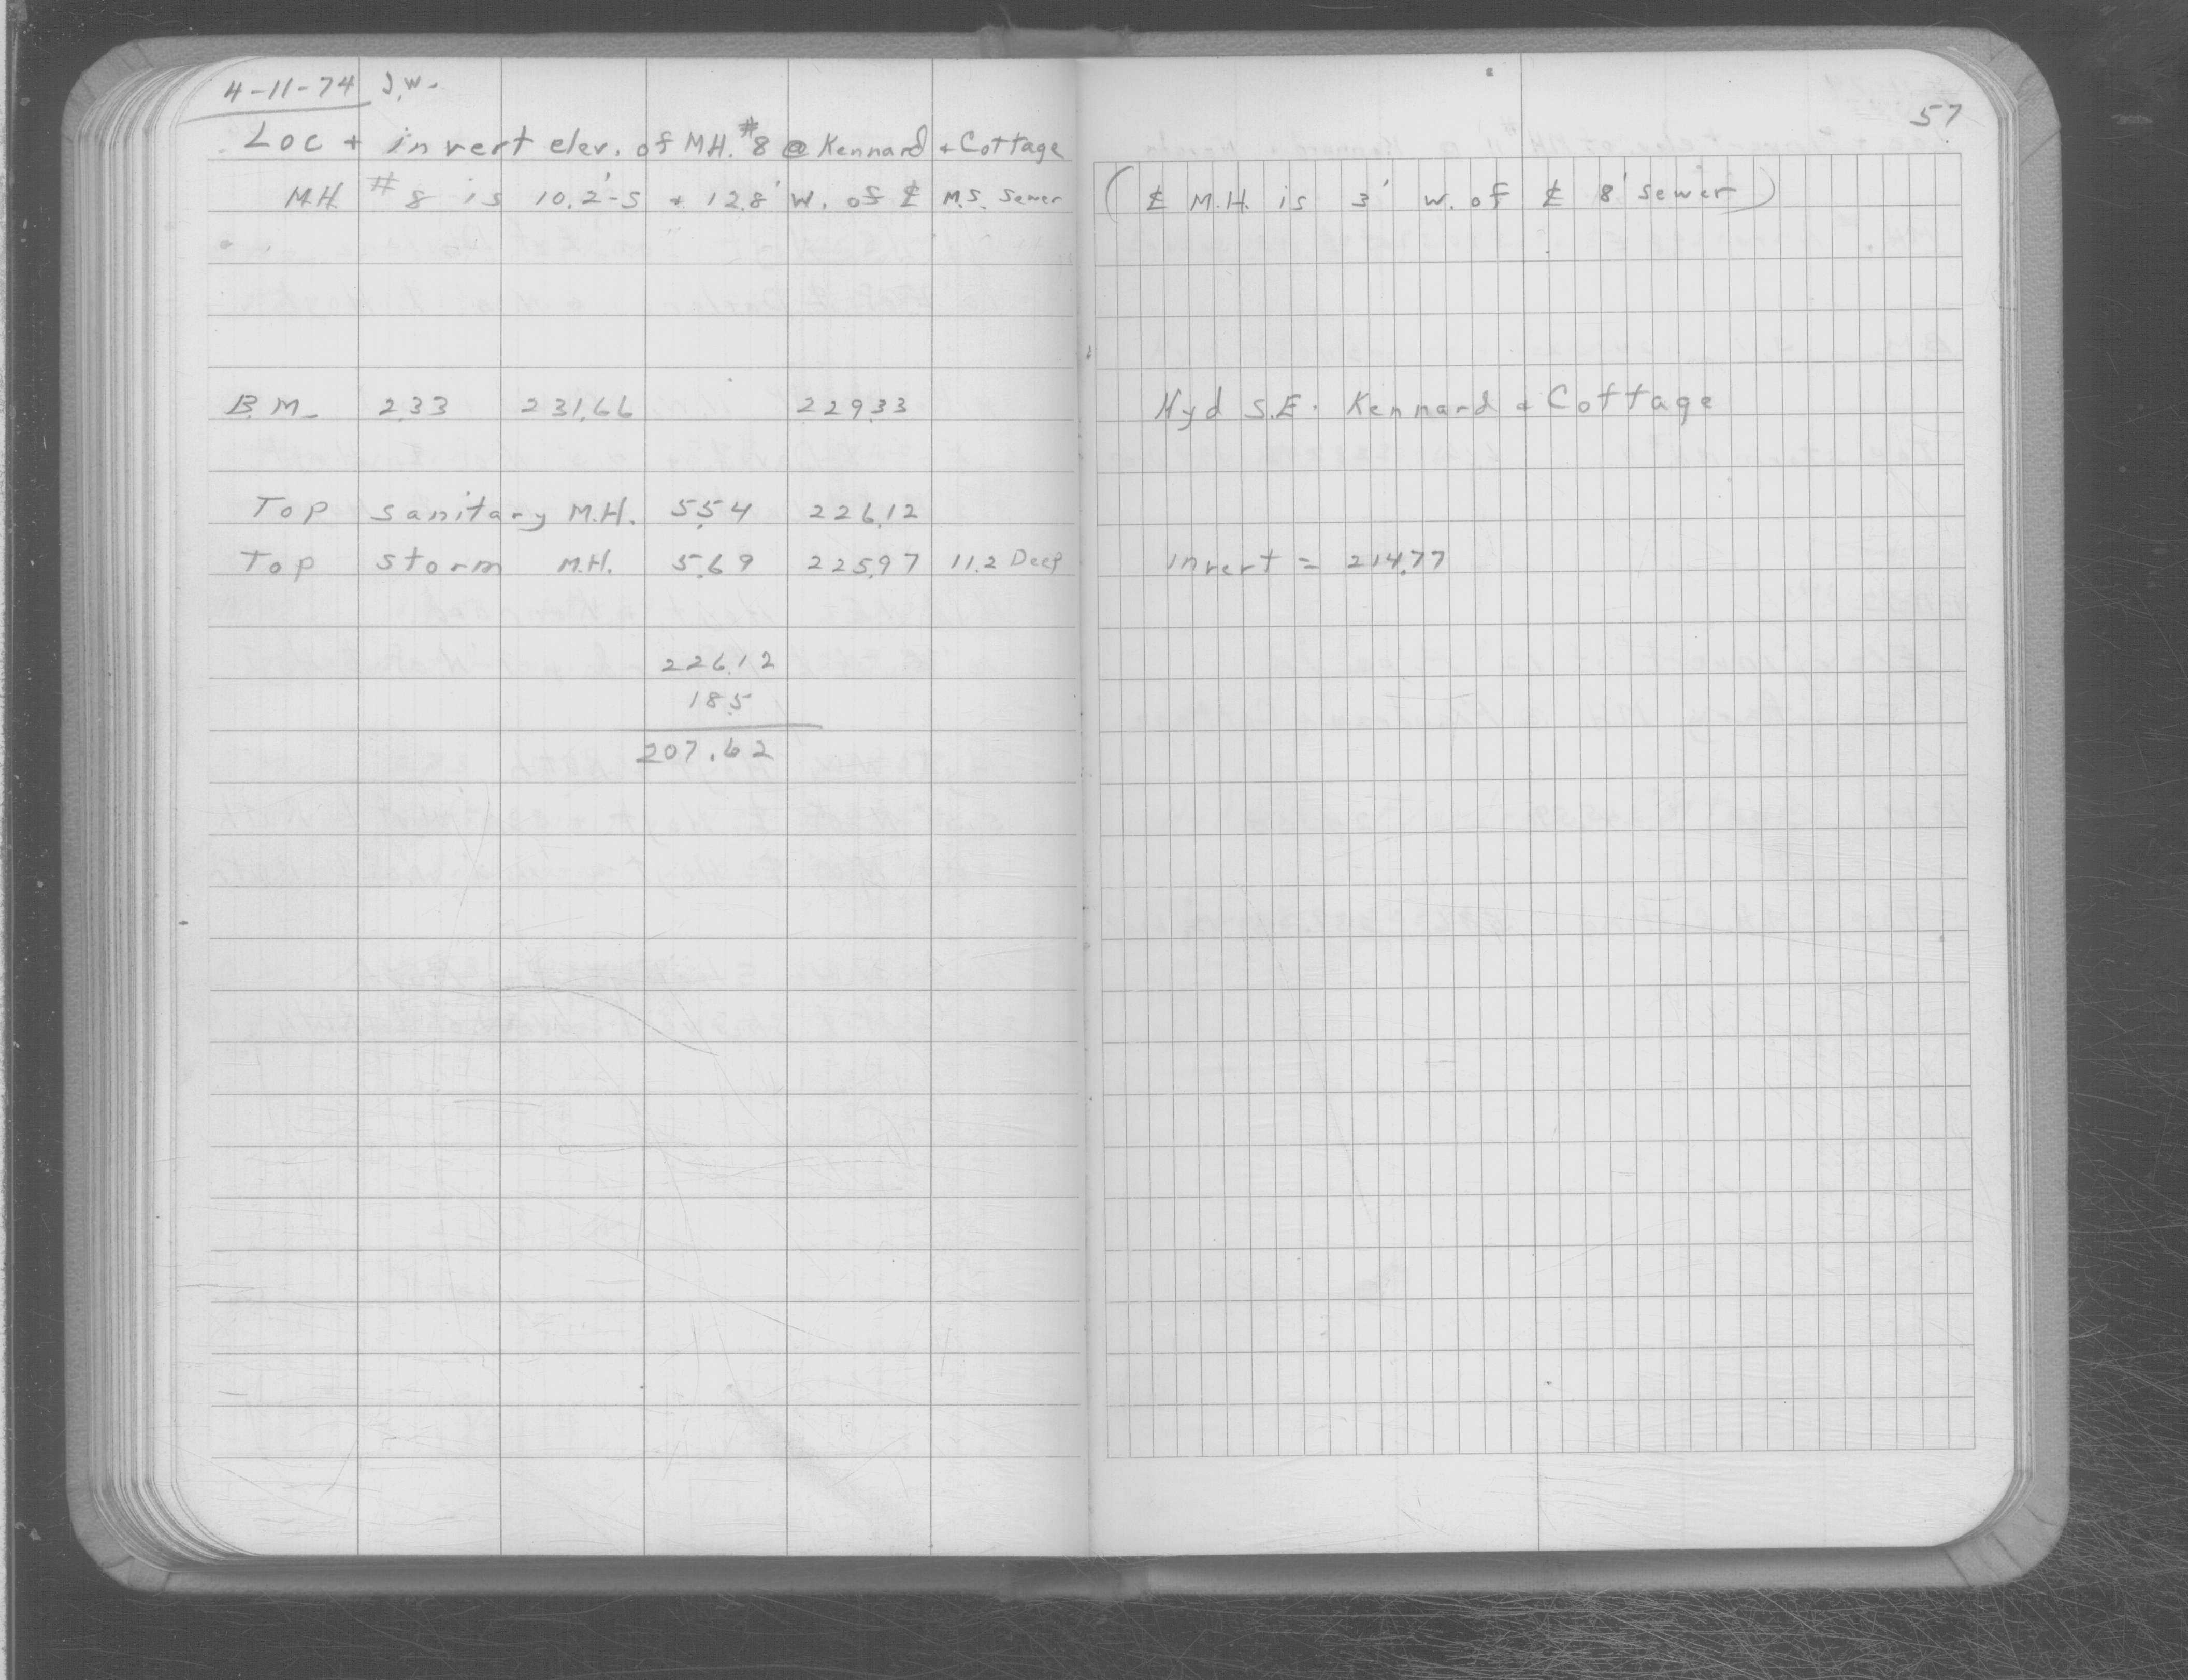 4-11-74 J.W.
57
Loc + invert elev. of M.H. #8 @ Kennard + Cottage
M.H. #8 is 10.2'-S + 12.8' W. of ℄ M.S. Sewer (℄ M.H. is 3' W. of ℄ 8' sewer)
B.M. 2.33 231.66 229.33 Hyd S.E. Kennard + Cottage
Top sanitary M.H. 5.54 226.12
Top storm M.H. 5.69 225.97 11.2 Deep invert = 214.77
226.12
18.5
207.62